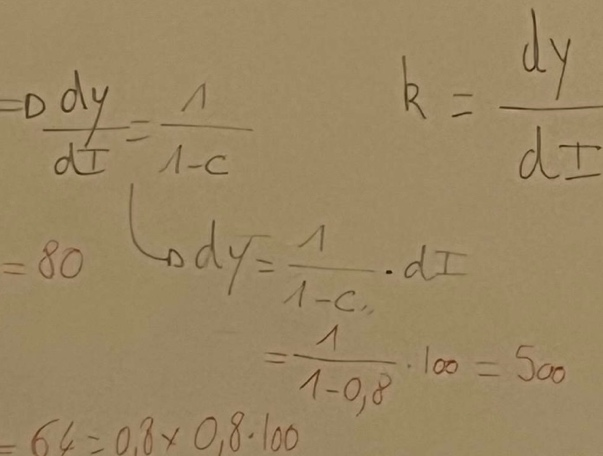 => dy/dI = 1/(1-c)
k = dy/dI
= 80
↳ dy = 1/(1-c) · dI
= 1/(1-0,8) · 100 = 500
= 64 = 0,8 x 0,8 · 100